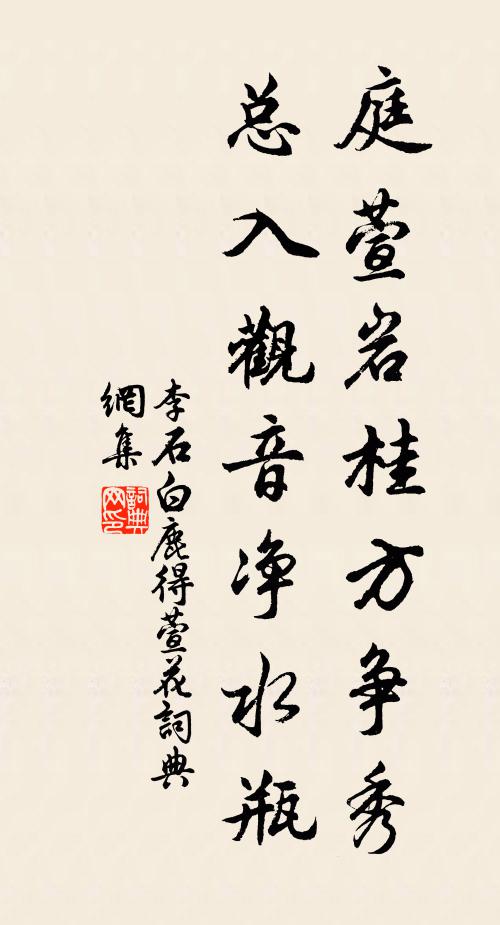 庭萱岩桂方争秀
总入觀音净水瓶
李石白鹿得萱花詞典
網集
詞典网印